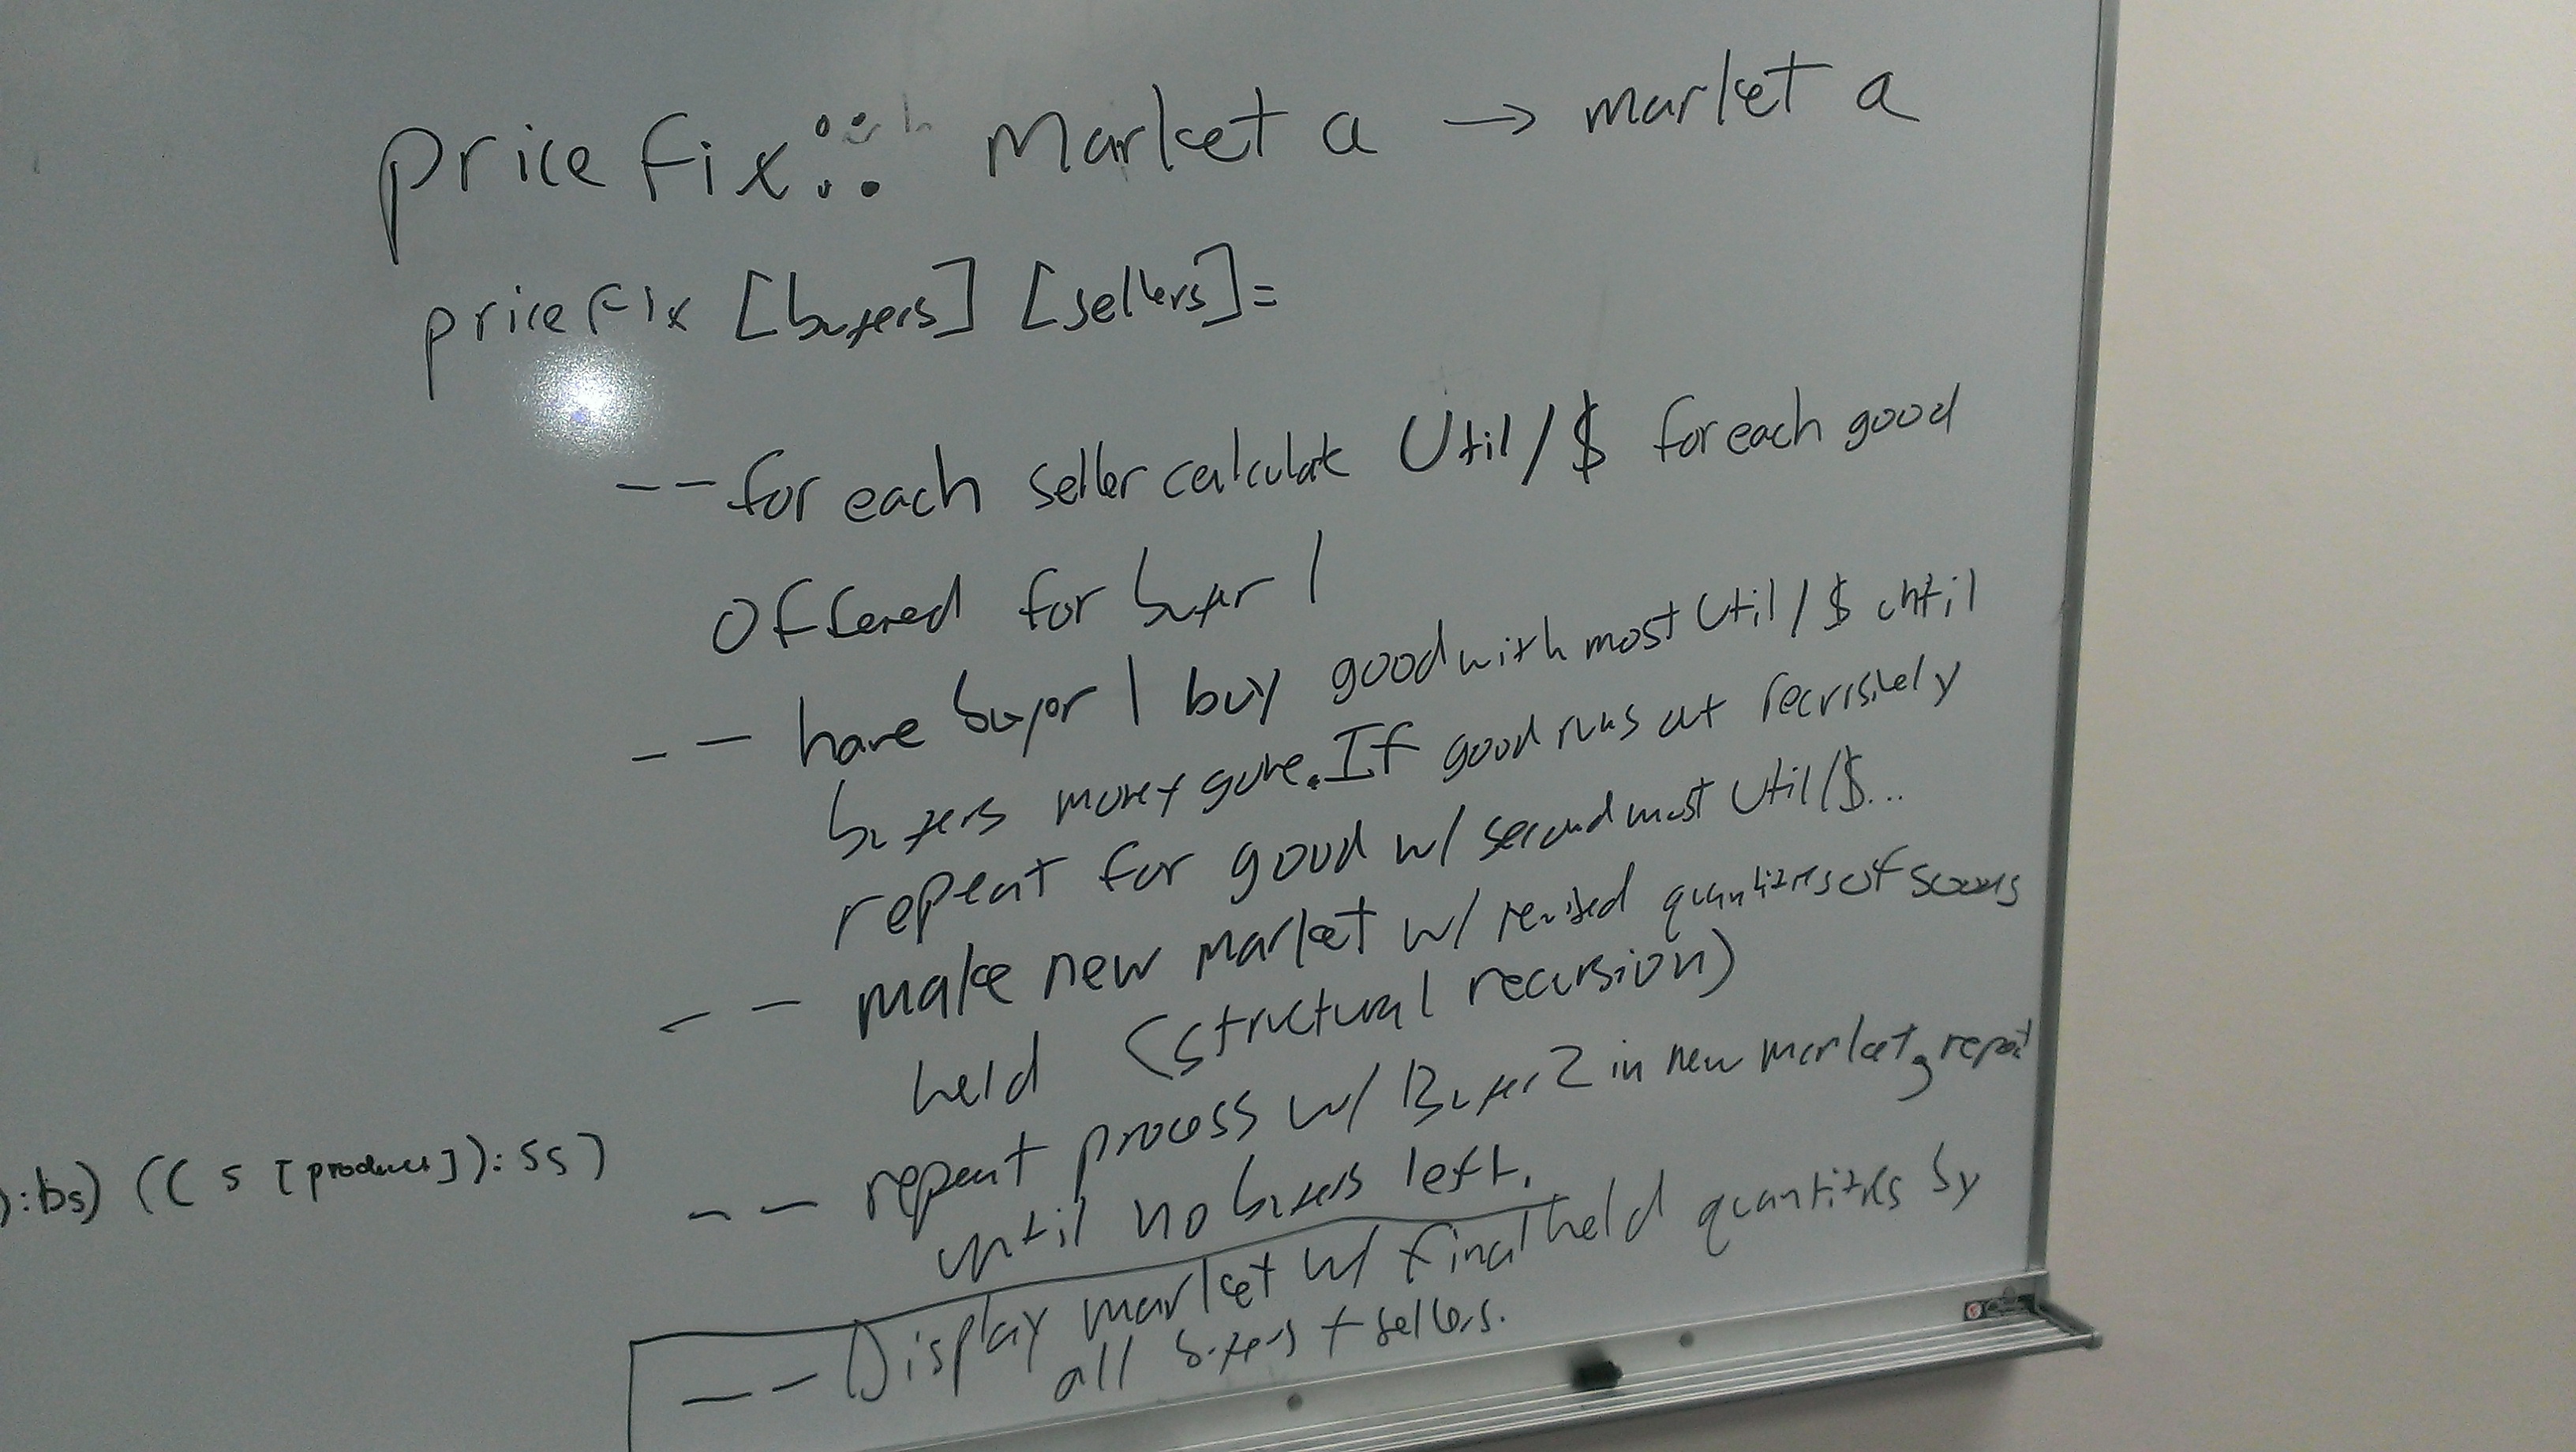 pricefix :: Market a → market a
pricefix [buyers] [sellers]=
--for each seller calculate Util/$ for each good
offered for buyer 1
-- have buyer 1 buy good with most Util/$ until
buyers money gone. If good runs out recursively
repeat for good w/ second most Util/$...
-- make new market w/ revised quantities of goods
held (structural recursion)
-- repeat process w/ Buyer 2 in new market, repeat
until no buyers left.
):bs) (( s [produces]):ss)
-- Display market w/ final held quantities by
all buyers + sellers.